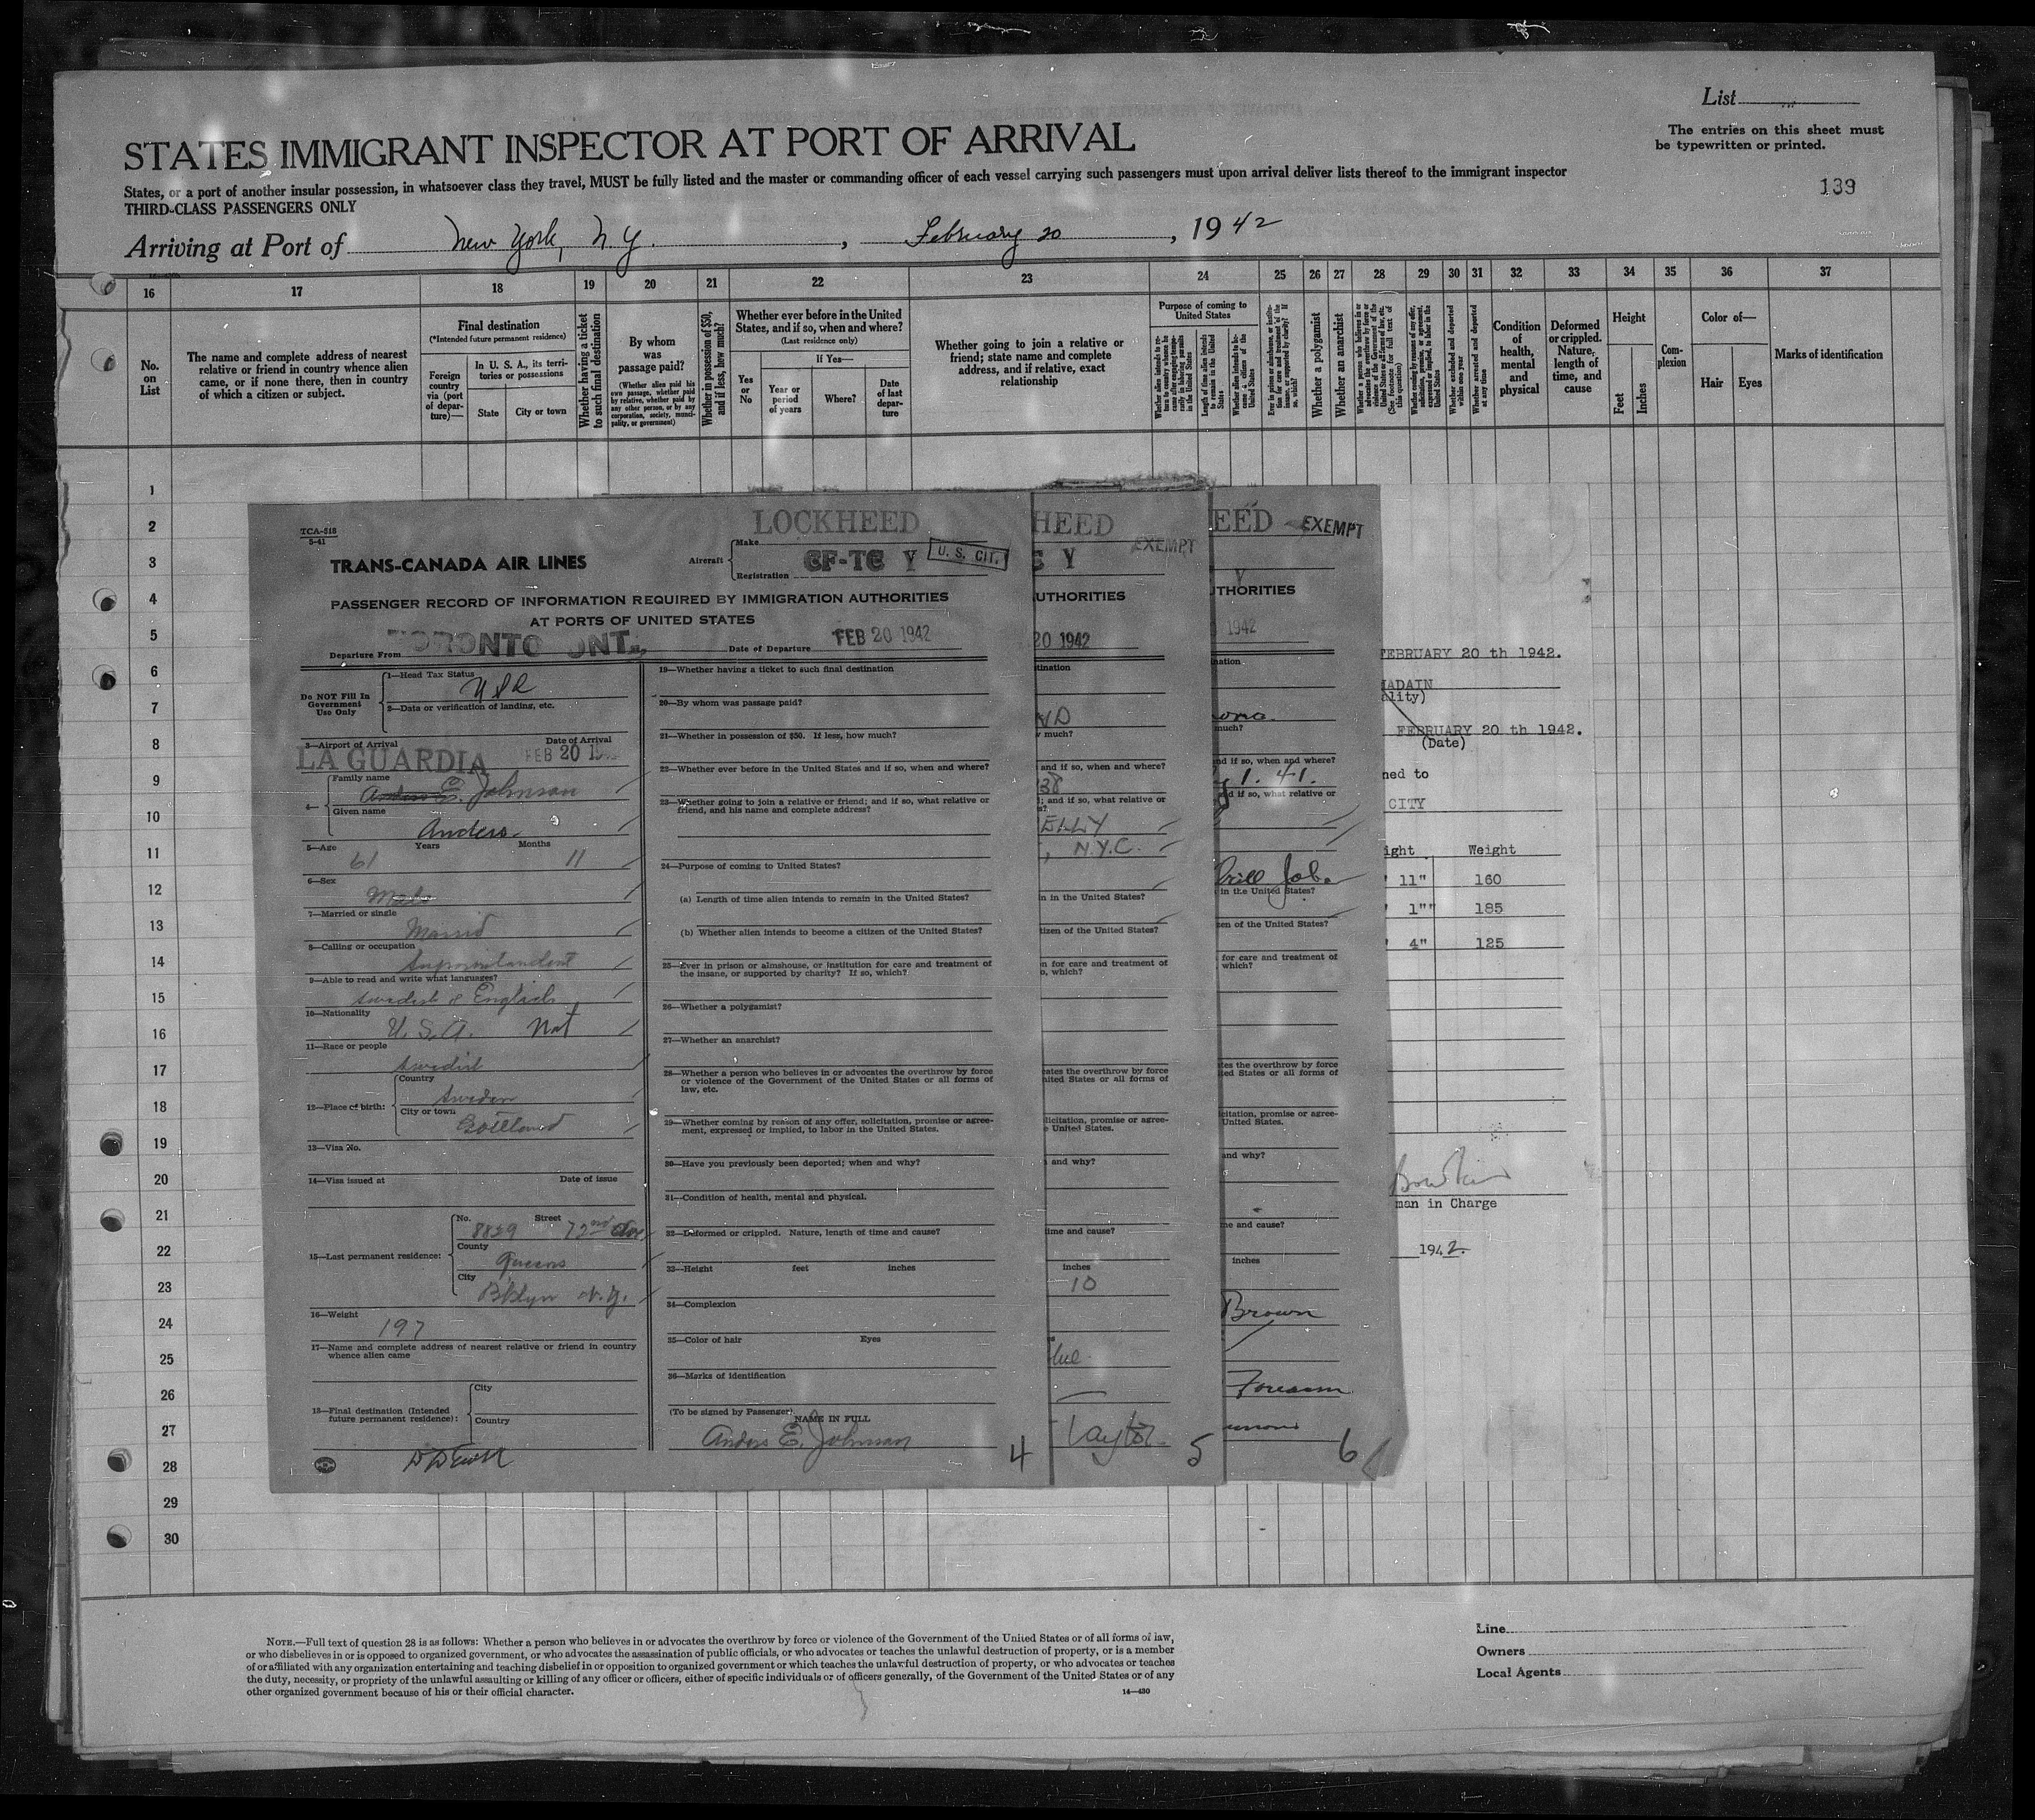 List
The entries on this sheet must
be typewritten or printed.
139
STATES IMMIGRANT INSPECTOR AT PORT OF ARRIVAL
States, or a port of another insular possession, in whatsoever class they travel, MUST be fully listed and the master or commanding officer of each vessel carrying such passengers must upon arrival deliver lists thereof to the immigrant inspector
THIRD-CLASS PASSENGERS ONLY
Arriving at Port of New York, N.Y. , February 20 , 1942
16 17 18 19 20 21 22 23 24 25 26 27 28 29 30 31 32 33 34 35 36 37
No. on List
The name and complete address of nearest
relative or friend in country whence alien
came, or if none there, then in country
of which a citizen or subject.
Final destination
(*Intended future permanent residence)
Foreign country via (port of departure)—
In U. S. A., its territories or possessions
State
City or town
Whether having a ticket to such final destination
By whom was passage paid?
(Whether alien paid his own passage, whether paid by relative, whether paid by any other person, or by any corporation, society, municipality, or government)
Whether in possession of $50, and if less, how much?
Whether ever before in the United
States, and if so, when and where?
(Last residence only)
Yes or No
If Yes—
Year or period of years
Where?
Date of last departure
Whether going to join a relative or
friend; state name and complete
address, and if relative, exact
relationship
Purpose of coming to
United States
Whether a polygamist
Whether an anarchist
Condition of health, mental and physical
Deformed or crippled. Nature, length of time, and cause
Height
Feet
Inches
Complexion
Color of—
Hair
Eyes
Marks of identification
1
2
3
4
5
6
7
8
9
10
11
12
13
14
15
16
17
18
19
20
21
22
23
24
25
26
27
28
29
30
TCA-518
5-41
TRANS-CANADA AIR LINES
Aircraft
Make LOCKHEED
Registration CF-TC Y
U. S. CIT.
PASSENGER RECORD OF INFORMATION REQUIRED BY IMMIGRATION AUTHORITIES
AT PORTS OF UNITED STATES
Departure From TORONTO ONT.
Date of Departure FEB 20 1942
Do NOT Fill In
Government
Use Only
1—Head Tax Status
2—Data or verification of landing, etc.
3—Airport of Arrival
Date of Arrival
LA GUARDIA FEB 20
4—
Family name
E. Johnson
Given name
Anders
5—Age Years Months
61 11
6—Sex
Male
7—Married or single
Married
8—Calling or occupation
Superintendent
9—Able to read and write what languages?
Swedish & English
10—Nationality
U. S. A. Nat
11—Race or people
Swedish
12—Place of birth:
Country
Sweden
City or town
Gottland
13—Visa No.
14—Visa issued at Date of issue
15—Last permanent residence:
No. Street
8829 72nd Ave
County
Queens
City
Bklyn N.Y.
16—Weight
197
17—Name and complete address of nearest relative or friend in country
whence alien came
18—Final destination (Intended
future permanent residence):
City
Country
19—Whether having a ticket to such final destination
20—By whom was passage paid?
21—Whether in possession of $50. If less, how much?
22—Whether ever before in the United States and if so, when and where?
23—Whether going to join a relative or friend; and if so, what relative or
friend, and his name and complete address?
24—Purpose of coming to United States?
(a) Length of time alien intends to remain in the United States?
(b) Whether alien intends to become a citizen of the United States?
25—Ever in prison or almshouse, or institution for care and treatment of
the insane, or supported by charity? If so, which?
26—Whether a polygamist?
27—Whether an anarchist?
28—Whether a person who believes in or advocates the overthrow by force
or violence of the Government of the United States or all forms of
law, etc.
29—Whether coming by reason of any offer, solicitation, promise or agree-
ment, expressed or implied, to labor in the United States.
30—Have you previously been deported; when and why?
31—Condition of health, mental and physical.
32—Deformed or crippled. Nature, length of time and cause?
33—Height feet inches
34—Complexion
35—Color of hair Eyes
36—Marks of identification
(To be signed by Passenger)
NAME IN FULL
Anders E. Johnson
4
HEED
EXEMPT
Y
UTHORITIES
20 1942
tination
much?
and if so, when and where?
38
; and if so, what relative or
ELLY
, N.Y.C.
n in the United States?
tizen of the United States?
n for care and treatment of
o, which?
cates the overthrow by force
nited States or all forms of
licitation, promise or agree-
e United States.
and why?
time and cause?
inches
10
lue
Taylor
5
EED
EXEMPT
THORITIES
1942
nation
much?
nd if so, when and where?
1. 41.
d if so, what relative or
Drill Job.
in the United States?
zen of the United States?
for care and treatment of
which?
tes the overthrow by force
ted States or all forms of
icitation, promise or agree-
United States.
and why?
me and cause?
inches
Brown
Forearm
6
FEBRUARY 20 th 1942.
ADAIN
ality)
FEBRUARY 20 th 1942.
(Date)
ned to
CITY
ight Weight
11" 160
1" 185
4" 125
man in Charge
1942
NOTE.—Full text of question 28 is as follows: Whether a person who believes in or advocates the overthrow by force or violence of the Government of the United States or of all forms of law,
or who disbelieves in or is opposed to organized government, or who advocates the assassination of public officials, or who advocates or teaches the unlawful destruction of property, or is a member
of or affiliated with any organization entertaining and teaching disbelief in or opposition to organized government or which teaches the unlawful destruction of property, or who advocates or teaches
the duty, necessity, or propriety of the unlawful assaulting or killing of any officer or officers, either of specific individuals or of officers generally, of the Government of the United States or of any
other organized government because of his or their official character.
14—430
Line
Owners
Local Agents